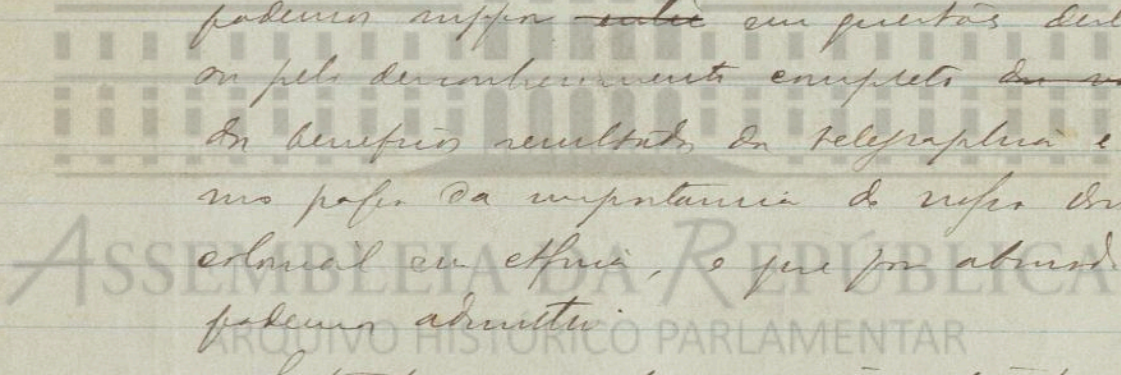 podemos suppor entre em questões des
ou pelo desconhecimento completo dos
dos beneficios resultados da telegraphia e
mo posso da importancia do nosso dom
colonial em Africa, o que por absurdo
podemos admittir.
ASSEMBLEIA DA REPÚBLICA
ARQUIVO HISTÓRICO PARLAMENTAR